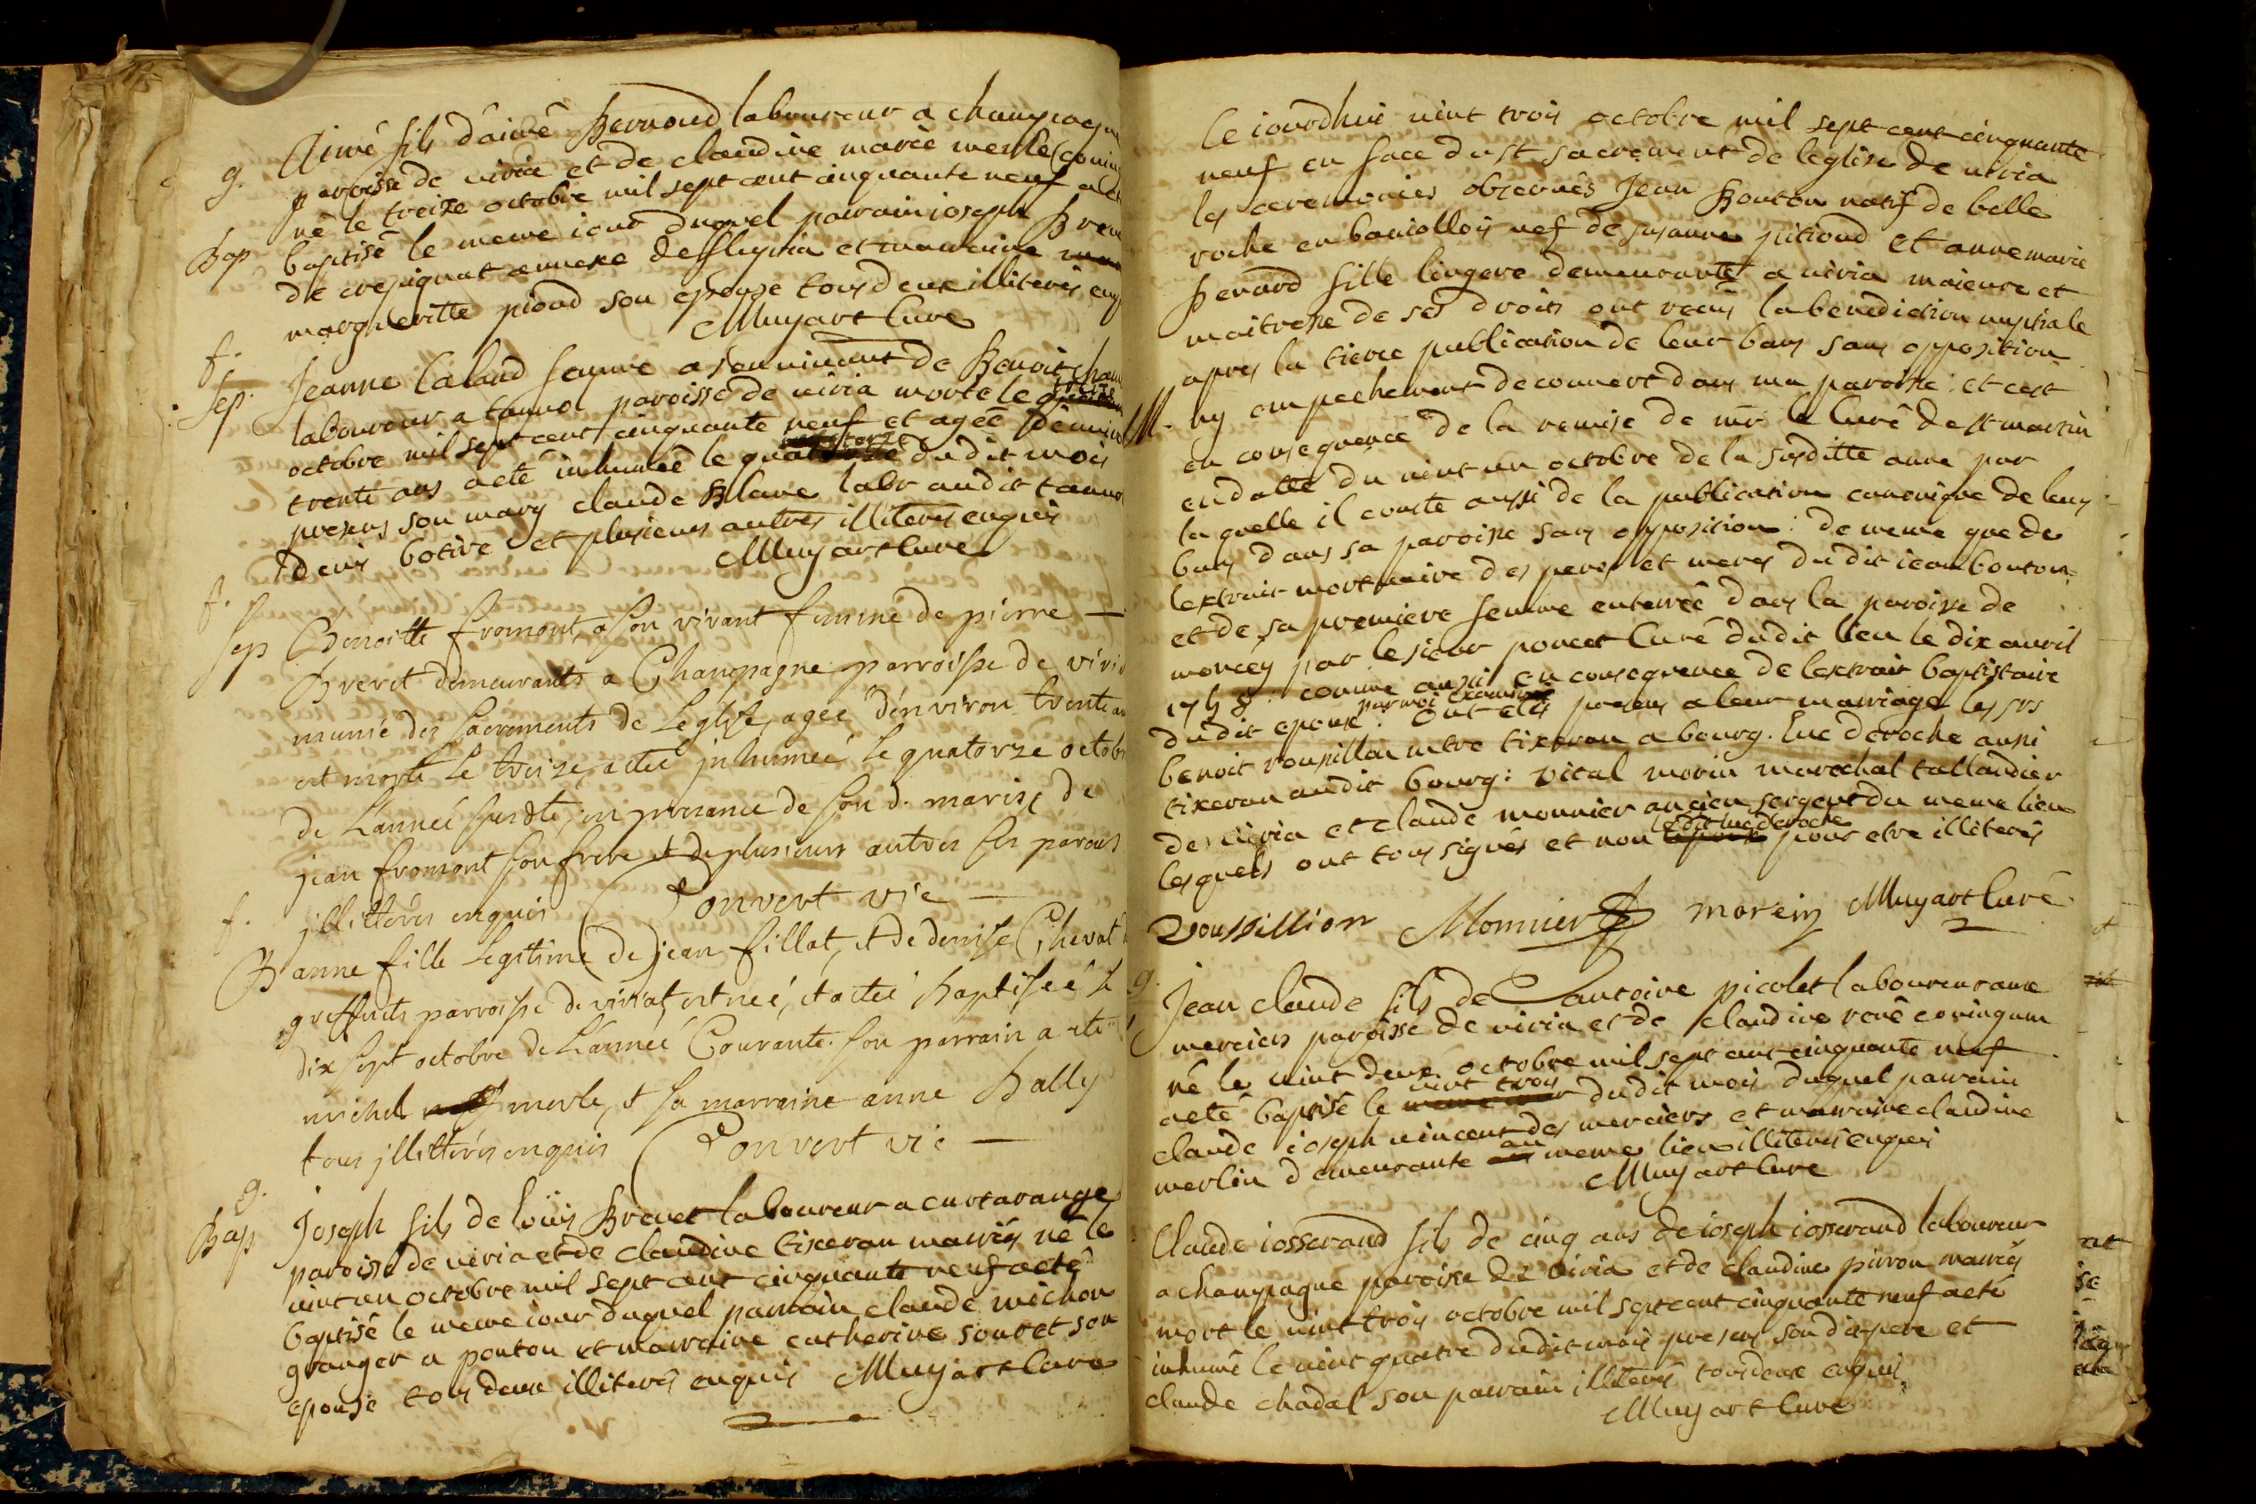 g. Aimé fils d'aimé Bernoud laboureur a champagne
paroisse de viria et de claudine marie merle
né le treize octobre mil sept cent cinquante neuf a eté
Bap baptisé le meme iour duquel parrain ioseph
de crepignat annexe de et marraine
margueritte pioud son epouse tous deux illiterés enq
Muyart Curé
f.
Sep. Jeanne Caland femme a son vivant de Benoit
laboureur a tannol paroisse de viria morte le
octobre mil sept cent cinquante neuf et agée denviro
trente ans a eté inhumée le quatorze dudit mois
presens son mary claude Blanc labr audit tanno
denis botire et plusieurs autres illiterés enquis
Muyart Curé
f.
Sep Benoitte fromont, a son vivant femme de pierre —
Brevet demeurants a Champagne parroisse de viria
munie des sacrements de Leglise, agée d'environ trente an
est morte le treize, a eté jnhumeé le quatorze octobr
de L'anneé susdte, en presence de son d. maris, de
jean fromont son frere et de plusieurs autres ses parens
jllitterés enquis Convert vic —
f.
B anne fille Legitime de jean fillat, et de denise Chevat
greffets parroisse de viriat, est neé, et a eté Baptiseé le
dix sept octobre de L'anneé Courante. son parrain a eté
michel merle, et sa marraine anne Bally
tous jllitterés enquis Convert vic —
g.
Bap Joseph fils de loüis Brevet laboureur a curtarange
paroisse de viria et de claudine tixeran mariés né le
vint un octobre mil sept cent cinquante neuf a eté
baptisé le meme iour duquel parrain claude michon
granger a ponton et marraine catherine souret son
epouse tous deux illiterés enquis Muyart Curé
le iourdhui vint trois octobre mil sept cent cinquante
neuf en face du st sacrement de leglise de viria
les ceremonies observés Jean Bonton natif de belle
roche en bauiollois vef de susanne pitioud et anne marie
Berard fille lingere demeurante a viria maieure et
maitresse de ses droits ont receus la benediction nuptiale
apres la tierce publication de leur bans sans opposition
M. ny empechement decouvert dans ma paroisse: et cest
en consequence de la remise de mr le Curé de st martin
en datte du vint un octobre de la susditte anne par
laquelle il conste aussi de la publication canonique de leurs
bans dans sa paroisse sans opposition: de meme que de
lextrait mortuaire des peres et meres dudit iean bonton
et de sa premiere femme enterrée dans la paroisse de
morcey par le sieur poncet Curé dudit lieu le dix avril
1758: comme aussi en consequence de lextrait baptistaire
dudit epoux par moi examiné: ont etés presens a leur mariage les srs
benoit roussillon mtre tixeran a bourg. luc deroche aussi
tixeran audit bourg: vital morin marechal tallandier
de viria et claude monnier ancien sergent du meme lieu
lesquels ont tous signés et non ledit luc deroche pour etre illiterés
Roussillion Monnier morein Muyart Curé
g. Jean claude fils de antoine picolet laboureur aux
merciers paroisse de viria et de claudine
né le vint deux octobre mil sept cent cinquante neuf
a eté baptisé le vint trois dudit mois duquel parrain
claude ioseph vincent des merciers et marraine claudine
merlin demeurante au meme lieu illiterés enquis
Muyart Curé
Claude iosserand fils de cinq ans de ioseph iosserand laboureur
a champagne paroisse de viria et de claudine pirron mariés
mort le vint trois octobre mil sept cent cinquante neuf a eté
inhumé le vint quatre dudit mois presens son dit pere et
claude chadal son parrain illiterés tous deux enquis
Muyart Curé